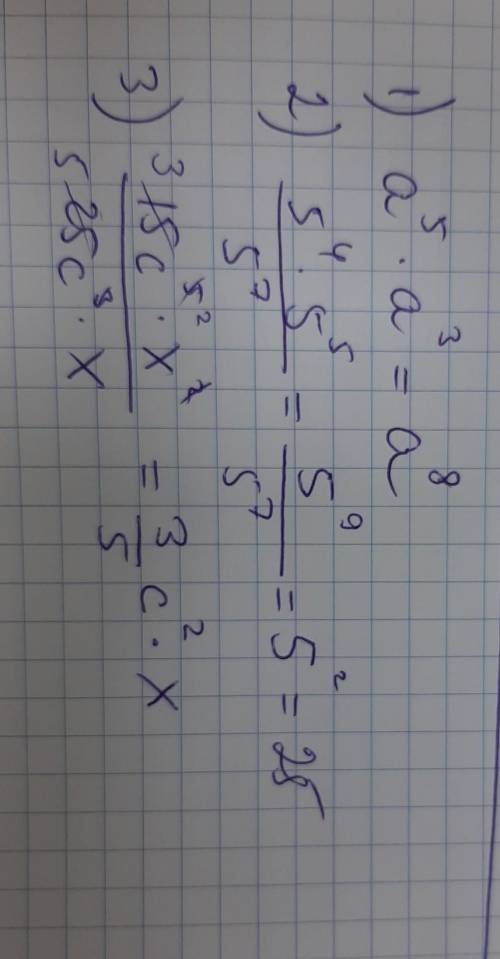 1) a⁵ · a³ = a⁸
2) 5⁴ · 5⁵ / 5⁷ = 5⁹ / 5⁷ = 5² = 25
3) 3 15c⁵ ² · x / 5 25c³ · x = 3/5 c² · x